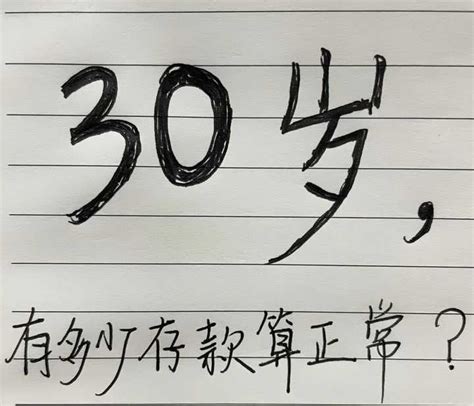 30岁,
有多少存款算正常?